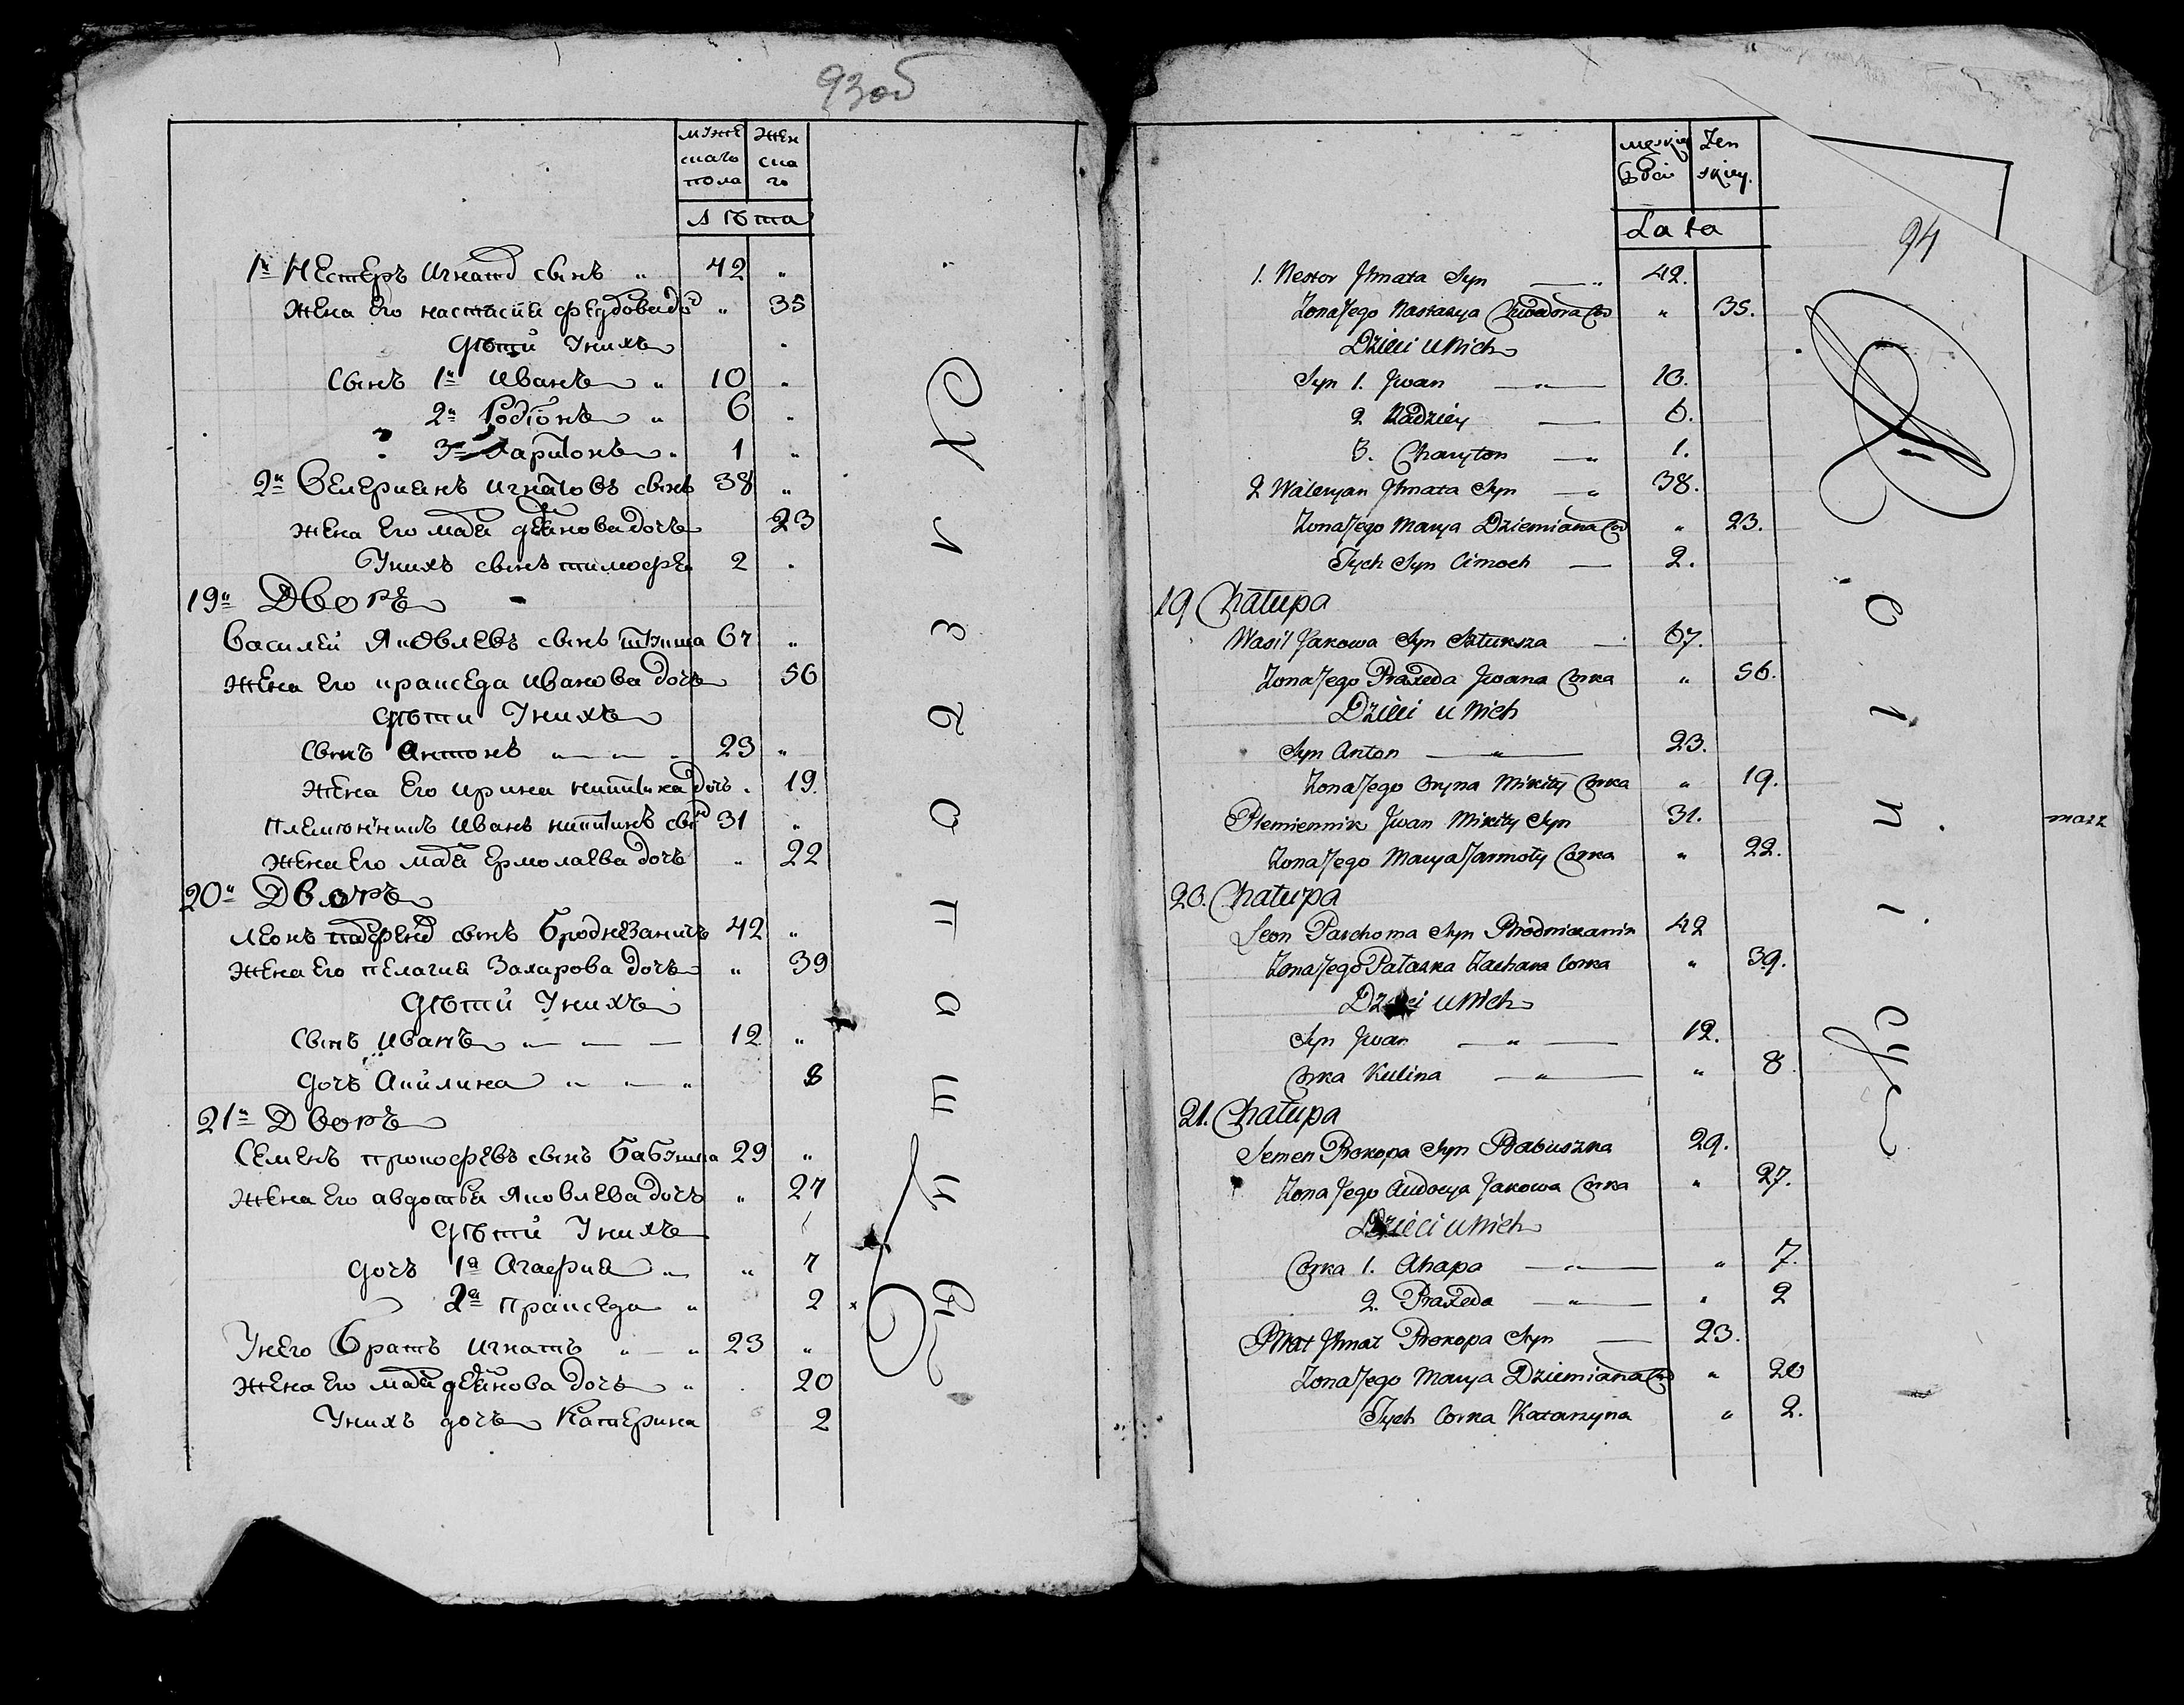 93об
мꙋже
скаго
пола
жен
ска
го
лѣта
1й Нестеръ Игнатов сынъ " 42 "
жена его настасия федоова до " 35
дѣти ꙋнихъ "
сынъ 1й Иванъ " 10 "
2й Родіонъ " 6 "
3й Харитонъ " 1 "
2й Велериянъ игнатовъ сынъ 38 "
жена его мария дочъ 23
ꙋнихъ сынъ тимофе 2 "
19й Дворъ
Василеи Яковлевъ сынъ штꙋкша 67 "
жена его пракседа иванова дочъ 56
дѣти ꙋнихъ
сынъ антонъ " " 23 "
жена его ирина никитина дочъ " 19
племянникъ иванъ никитинъ сынъ 31 "
жена его мария ермолаева дочъ " 22
20й Дворъ
леонъ сынъ Бродневаникъ 42 "
жена его пелагия Захарова дочъ " 39
дѣти ꙋнихъ
сынъ иванъ " 12 "
дочъ Акилина " " " 8
21й Дворъ
Семенъ прокофевъ сынъ бабꙋшка 29 "
жена его авдотья Яковлева дочъ " 27
дѣти ꙋнихъ
дочъ 1я Агафия " " 7
2я пракседа " 2
ꙋнего братъ игнатъ " " 23 "
жена его мария дочъ " 20
ꙋнихъ дочъ Катерина 2
męskiey
Płci
Żen
skiey.
Lata
94
1. Nestor Ihnata Syn " 42.
Żona Jego Nastazya Chwedora Co " 35.
Dzieci u Nich
Syn 1. Jwan " 10.
2 Radziey 6.
3. Charyton " 1.
2 Waleryan Ihnata Syn " 38.
Żona Jego Marya Dziemiana Co " 23.
Tych Syn Cimoch 2.
19 Chałupa
Wasil Jakowa Syn Sztuksza 67.
Żona Jego Praxeda Jwana Corka " 56.
Dzieci u Nich
Syn Anton " 23.
Żona Jego Oryna Mikity Corka " 19.
Plemiennik Jwan Mikity Syn 31.
Żona Jego Marya Jarmoły Corka " 22.
20. Chałupa
Leon Parchoma Syn Brodniczanin 42
Żona Jego Pałaska Zachara Corka " 39.
Dzieci u Nich
Syn Jwan " 12.
Corka Kulina " " 8.
21. Chałupa
Semen Prokopa Syn Babuszka 29.
Żona Jego Audocya Jakowa Corka " 27.
Dzieci u Nich
Corka 1. Ahapa " " 7.
2. Praxeda " " 2
Brat Ihnat Prokopa Syn 23.
Żona Jego Marya Dziemiana Co " 20
Tych Corka Katarzyna " 2.